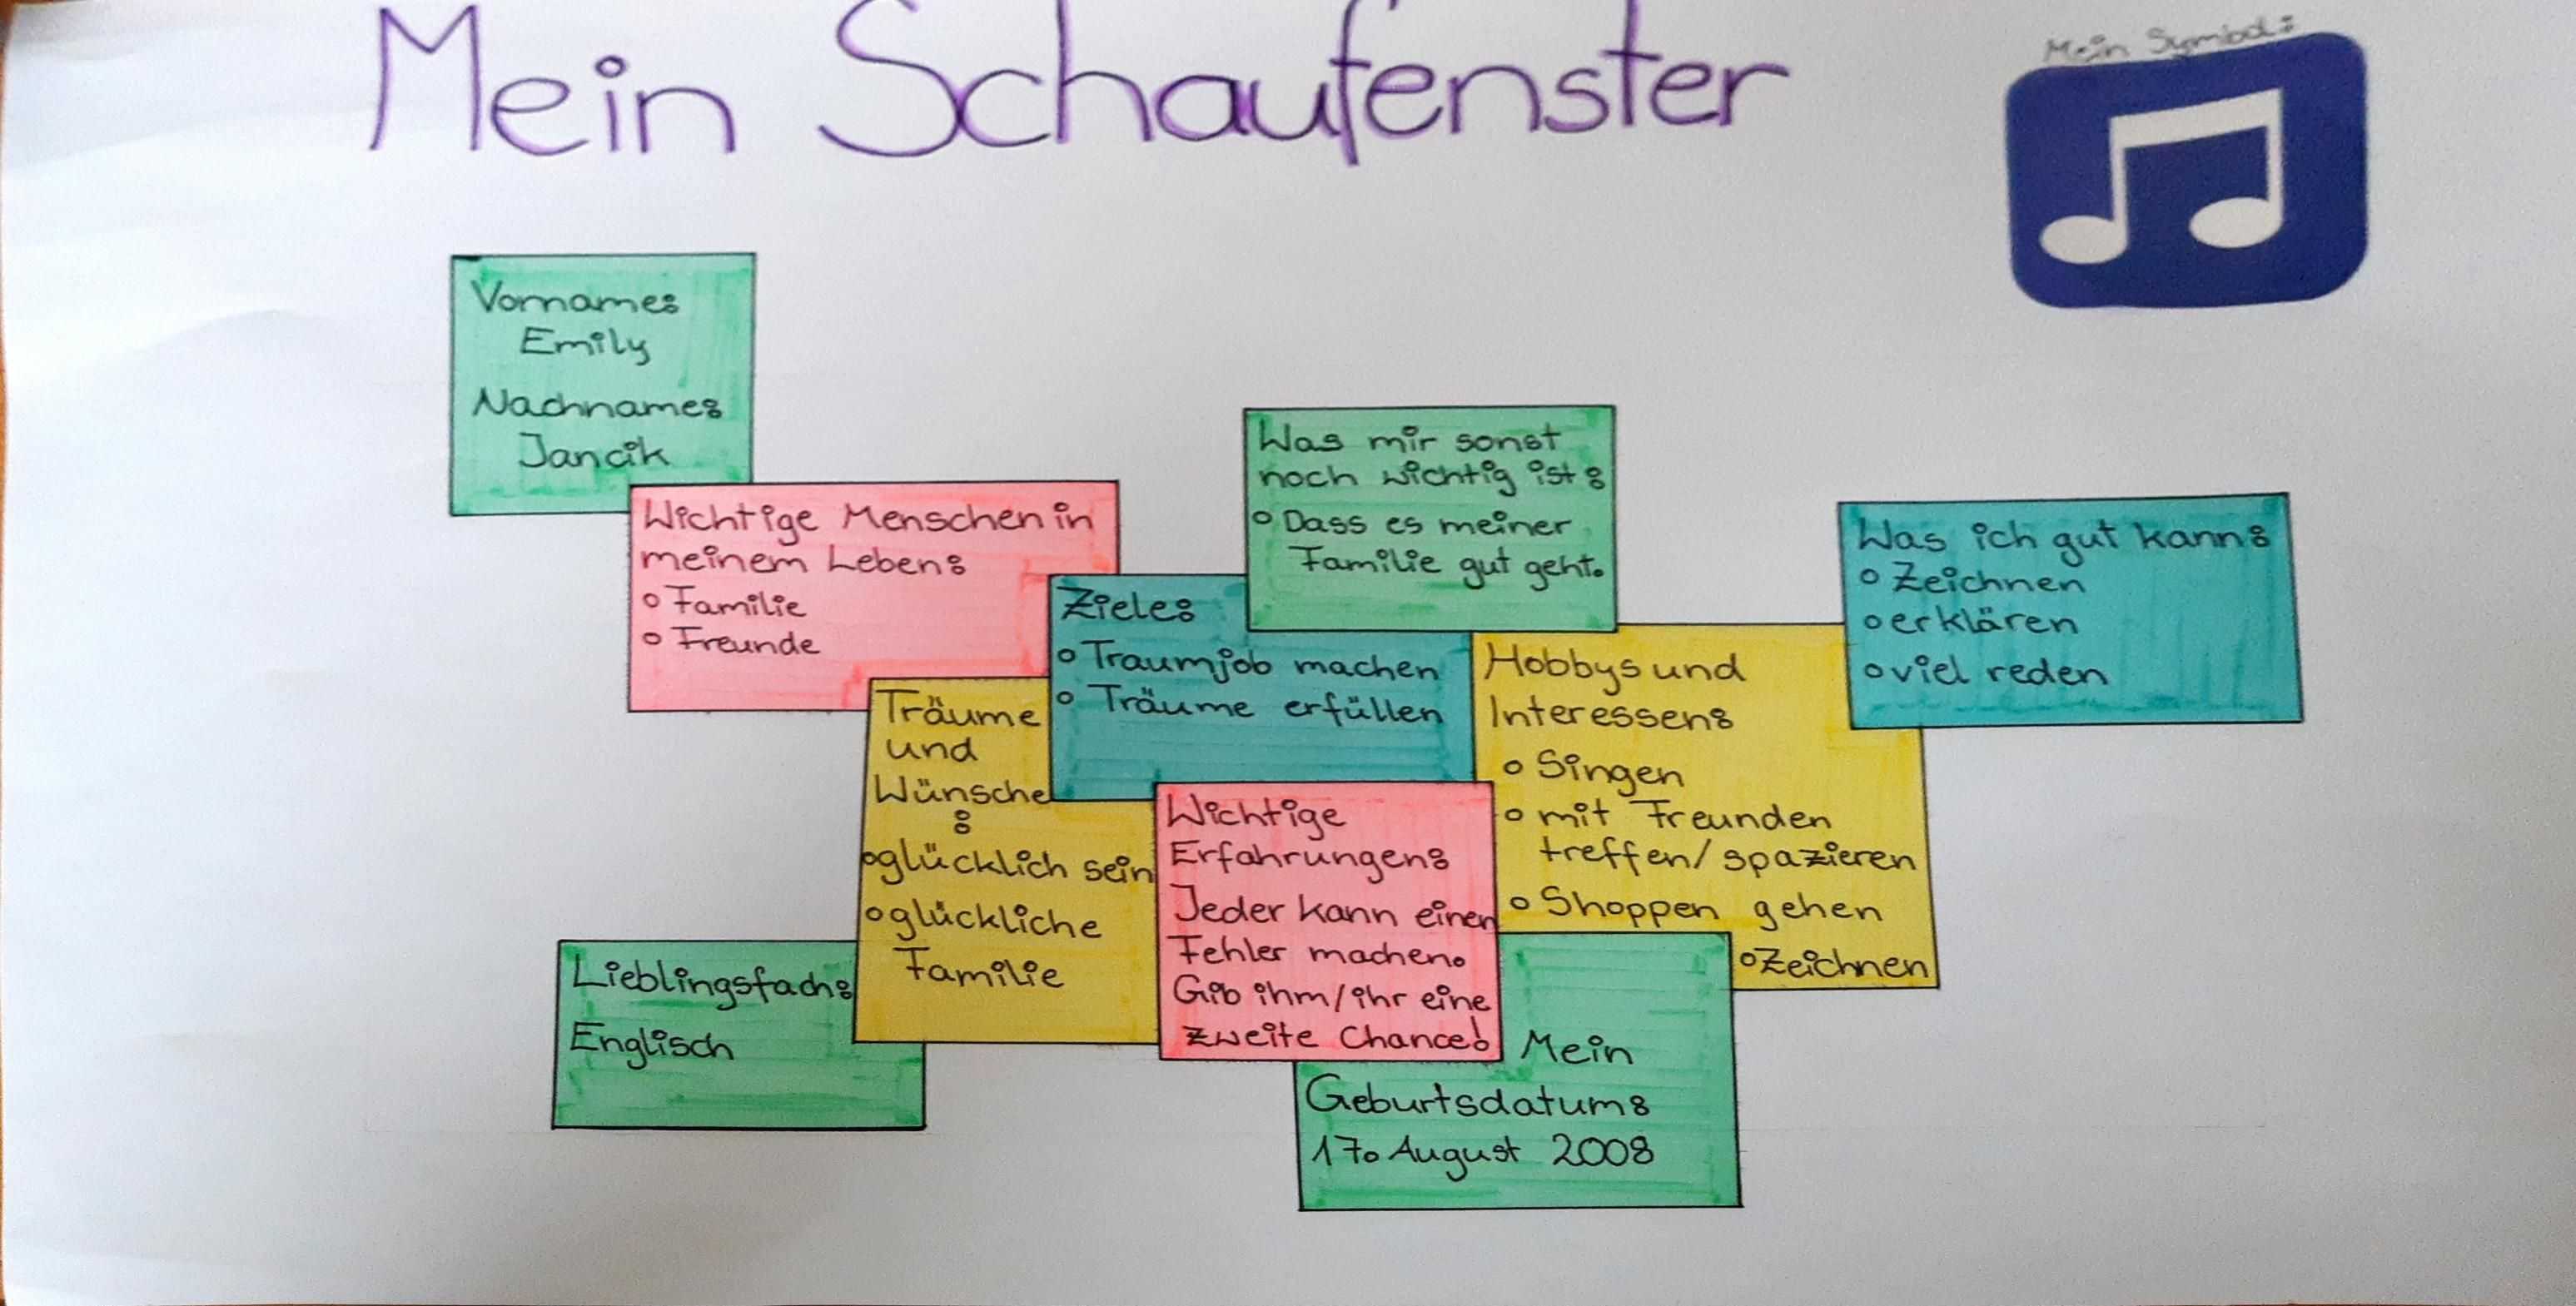 Mein Schaufenster
Mein Symbol:
Vorname:
Emily
Nachname:
Jancik
Wichtige Menschen in
meinem Leben:
o Familie
o Freunde
Was mir sonst
noch wichtig ist:
o Dass es meiner
Familie gut geht.
Ziele:
o Traumjob machen
o Träume erfüllen
Was ich gut kann:
o Zeichnen
o erklären
o viel reden
Hobbys und
Interessen:
o Singen
o mit Freunden
treffen/spazieren
o Shoppen gehen
o Zeichnen
Träume
und
Wünsche
:
o glücklich sein
o glückliche
Familie
Wichtige
Erfahrungen:
Jeder kann einen
Fehler machen.
Gib ihm/ihr eine
zweite Chance!
Lieblingsfach:
Englisch
Mein
Geburtsdatum:
17. August 2008